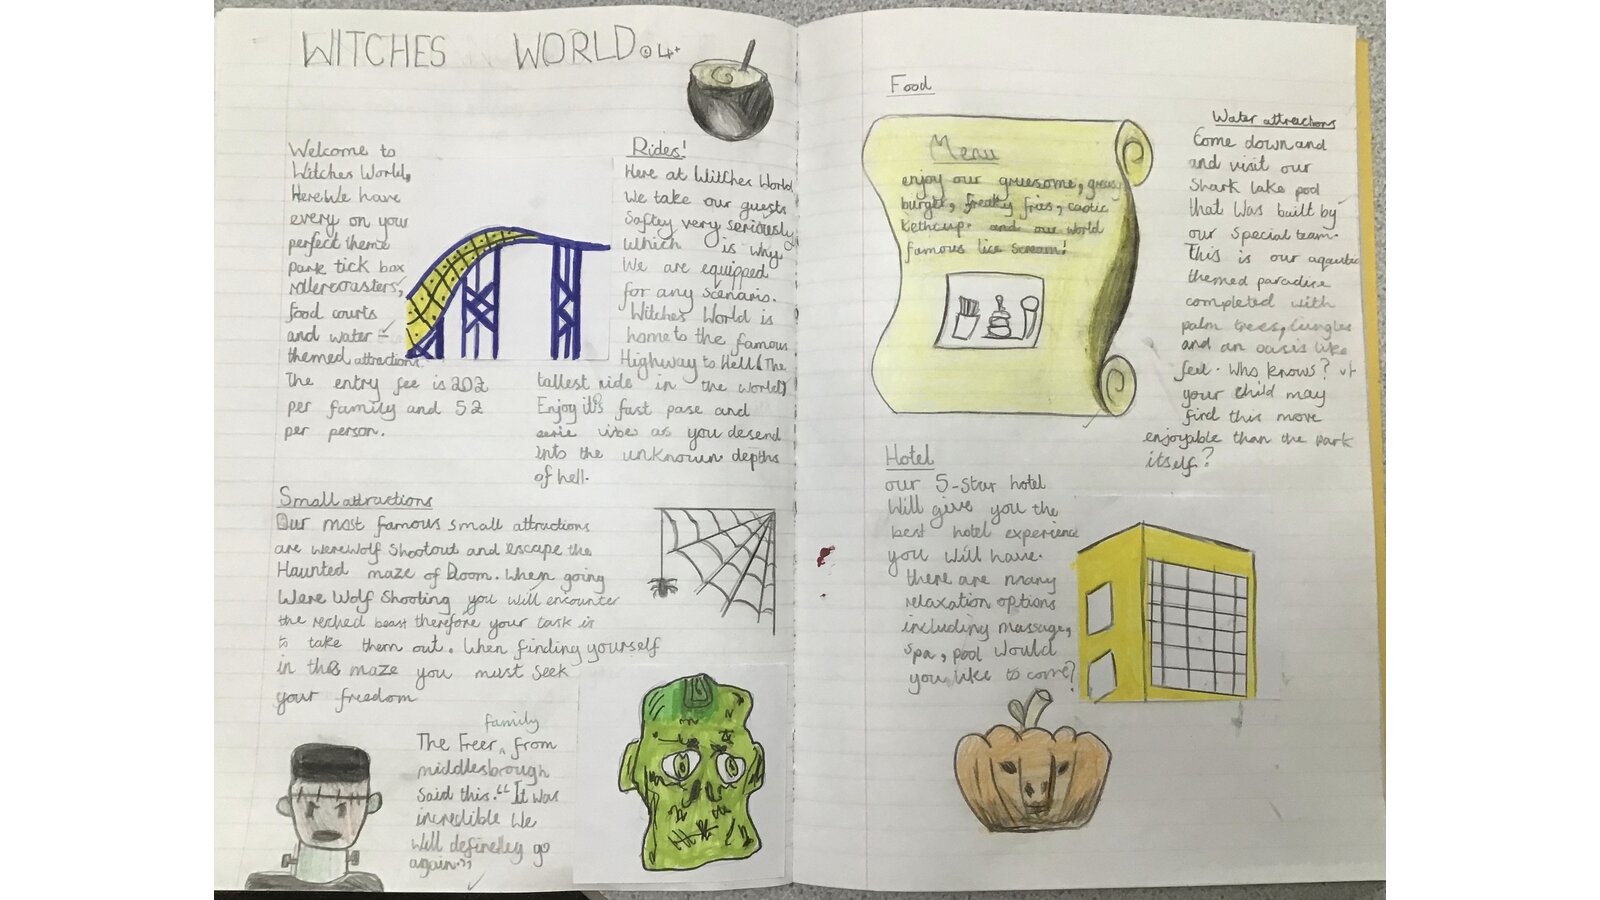 WITCHES WORLD
Welcome to
Witches World,
Here We have
every on your
perfect theme
park tick box
rollercoasters,
food courts
and water -
themed attractions.
The entry fee is 202
per family and 52
per person.
Rides!
Here at Witches World
We take our guests
Saftey very seriously
Which is why
We are equipped
for any scenario.
Witches World is
home to the famous
Highway to Hell! (The
tallest ride in the world)
Enjoy it's fast pase and
eerie vibes as you desend
into the unknown depths
of hell.
Small attractions
Our most famous small attractions
are werewolf Shootout and escape the
Haunted maze of Doom. When going
Were Wolf Shooting you will encounter
the reched beast therefore your task is
to take them out. When finding yourself
in this maze you must seek
your freedom
family
The Freer ^ from
middlesbrough
Said this. "It was
incredible We
Will definelley go
again."
Food
Menu
enjoy our gruesome, greasy
burger, freaky fries, caotic
Kethcup. and our world
famous lice scream!
Water attractions
Come down and
and visit our
Shark lake pod
that Was built by
our special team.
This is our aquatic
themed paradise
completed with
palm trees, Jungles
and an oasis like
feel. Who knows?
your Child may
find this more
enjoyable than the park
itself?
Hotel
our 5-Star hotel
Will give you the
best hotel experience
you will have.
there are many
relaxation options
including massage,
spa, pool would
you like to come?